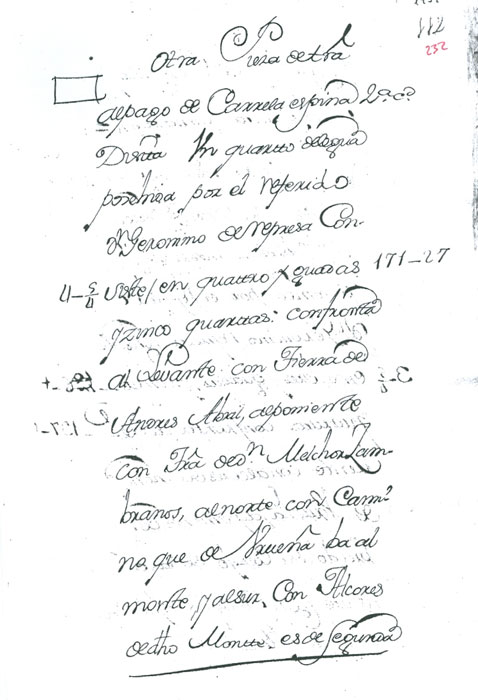 112
232
Otra Pieza de trã
al pago de Carrera espina 2ª cd
Dista Un quarto de legua
posehida por el referido
dn Geronimo de represa Con-
siste / en quattro y quadas 171-27
4-5/4
y zinco quartas: confronta
al Levante con Tierra de
Andres Abril, al poniente
con Trã de dn Melchor Zam-
branos, al norte con Cami
no que de Urueña ba al
monte y al sur, Con Alcores
de dho Monte. es de segunda